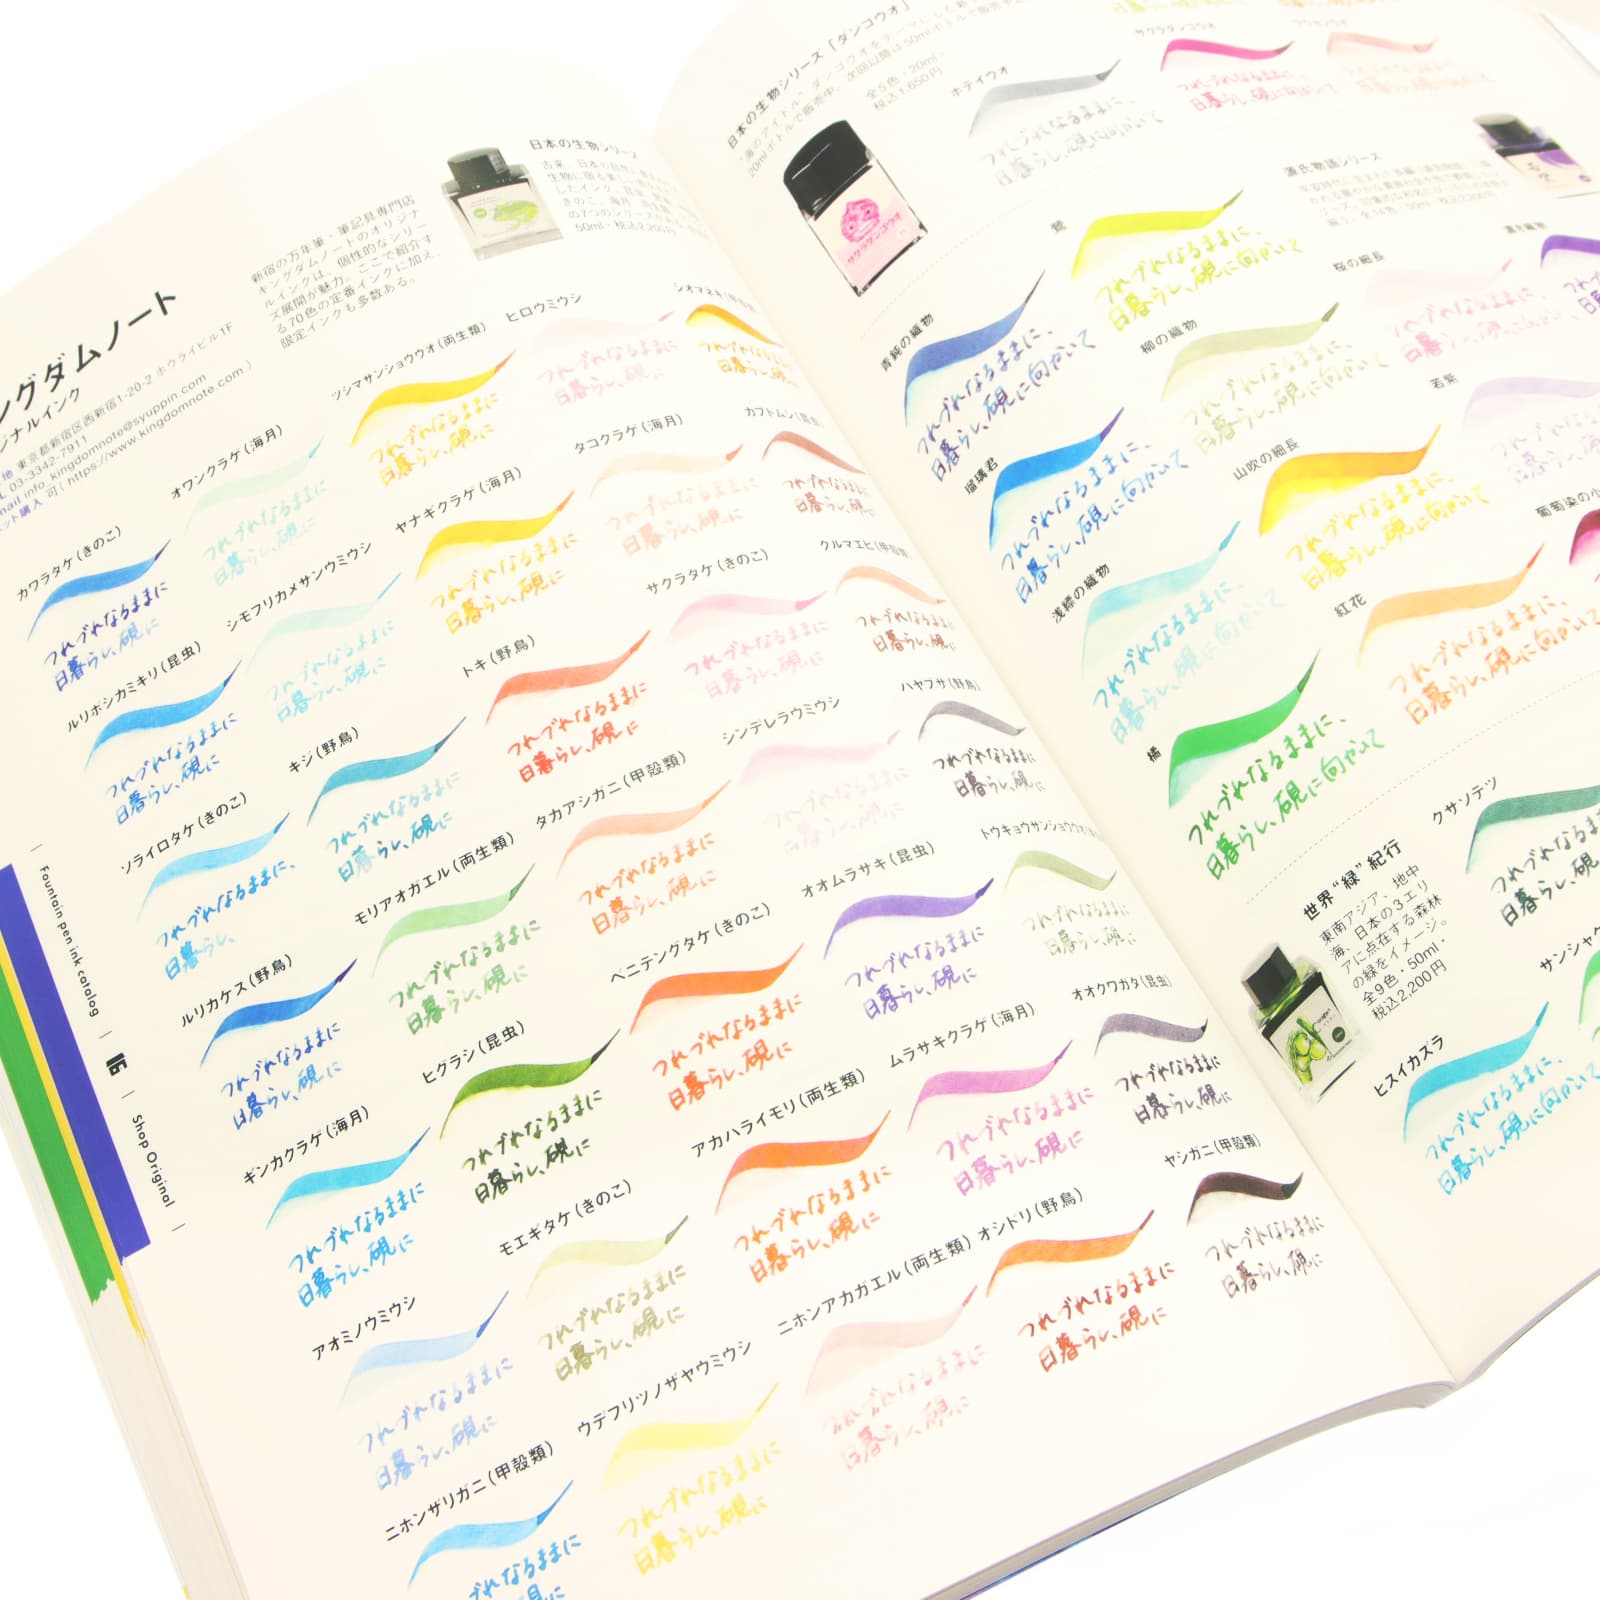 ングダムノート
ジナルインク
東京都新宿区西新宿1-20-2 ホウライビル1F
03-3342-7911
info_kingdomnote@syuppin.com
ット購入 可( https://www.kingdomnote.com )
新宿の万年筆・筆記具専門店
キングダムノートのオリジナ
ルインクは、個性的なシリー
ズ展開が魅力。ここで紹介す
る70色の定番インクに加え、
限定インクも多数ある。
日本の生物シリーズ
50ml・税込2,200円
カワラタケ(きのこ)
つれづれなるままに
日暮らし、硯に
ルリボシカミキリ(昆虫)
つれづれなるままに
日暮らし、硯に
ソライロタケ(きのこ)
つれづれなるままに、
日暮らし、
ルリカケス(野鳥)
つれづれなるままに
日暮らし、硯に
ギンカクラゲ(海月)
つれづれなるままに
日暮らし、硯に
アオミノウミウシ
つれづれなるままに
日暮らし、硯に
ニホンザリガニ(甲殻類)
づれなるままに
オワンクラゲ(海月)
つれづれなるままに
日暮らし、硯に
シモフリカメサンウミウシ
つれづれなるままに
日暮らし、硯に
キジ(野鳥)
つれづれなるままに
日暮らし、硯に
モリアオガエル(両生類)
つれづれなるままに
日暮らし、硯に
ヒグラシ(昆虫)
つれづれなるままに
日暮らし、硯に
モエギタケ(きのこ)
つれづれなるままに
日暮らし、硯に
ウデフリツノザヤウミウシ
つれづれなるままに
日暮らし、硯に
ツシマサンショウウオ(両生類)
つれづれなるままに
日暮らし、硯に
ヤナギクラゲ(海月)
つれづれなるままに
日暮らし、硯に
トキ(野鳥)
つれづれなるままに
日暮らし、硯に
タカアシガニ(甲殻類)
つれづれなるままに
日暮らし、硯に
ベニテングタケ(きのこ)
つれづれなるままに
日暮らし、硯に
アカハライモリ(両生類)
つれづれなるままに
日暮らし、硯に
ニホンアカガエル(両生類)
つれづれなるままに
日暮らし、硯に
ヒロウミウシ
つれづれなるままに
日暮らし、硯に
タコクラゲ(海月)
つれづれなるままに
日暮らし、硯に
サクラタケ(きのこ)
つれづれなるままに
日暮らし、硯に
シンデレラウミウシ
つれづれなるままに
日暮らし、硯に
オオムラサキ(昆虫)
つれづれなるままに
日暮らし、硯に
ムラサキクラゲ(海月)
つれづれなるままに
日暮らし、硯に
オシドリ(野鳥)
つれづれなるままに
日暮らし、硯に
シオマネキ
つれづれなるままに
日暮らし、硯に
カブトムシ(昆虫)
つれづれなるままに
日暮らし、硯に
クルマエビ(甲殻類)
つれづれなるままに
日暮らし、硯に
ハヤブサ(野鳥)
つれづれなるままに
日暮らし、硯に
トウキョウサンショウウオ
つれづれなるままに
日暮らし、硯に
オオクワガタ(昆虫)
つれづれなるままに
日暮らし、硯に
ヤシガニ(甲殻類)
つれづれなるままに
日暮らし、硯に
Fountain pen ink catalog
Shop Original
日本の生物シリーズ「ダンゴウオ」
全5色・20ml・
税込1,650円
サクラダンゴウオ
ホテイウオ
つれづれなるままに、
日暮らし、硯に向かいて
サクラダンゴウオ
つれづれなるままに、
日暮らし、硯に向かいて
源氏物語シリーズ
青鈍の織物
つれづれなるままに、
日暮らし、硯に向かいて
瑠璃君
つれづれなるままに、
日暮らし、硯に向かいて
浅縹の織物
つれづれなるままに、
日暮らし、硯に向かいて
橘
つれづれなるままに、
日暮らし、硯に向かいて
つれづれなるままに、
日暮らし、硯に向かいて
柳の織物
つれづれなるままに、
日暮らし、硯に向かいて
山吹の細長
つれづれなるままに、
日暮らし、硯に向かいて
紅花
つれづれなるままに、
日暮らし、硯に向かいて
桜の細長
若紫
葡萄染の小
世界“緑”紀行
東南アジア、地中
海、日本の3エリ
アに点在する森林
の緑をイメージ。
全9色・50ml・
税込2,200円
クサソテツ
ヒスイカズラ
つれづれなるままに、
日暮らし、硯に向かいて
サンシャ